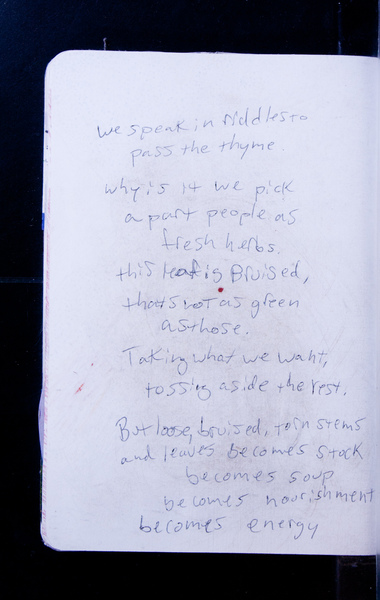 we speak in riddles to
pass the thyme.
why is it we pick
apart people as
fresh herbs.
this leaf is Bruised,
thats not as green
as those.
Taking what we want,
tossing aside the rest.
But loose, bruised, torn stems
and leaves becomes stock
becomes soup
becomes nourishment
becomes energy